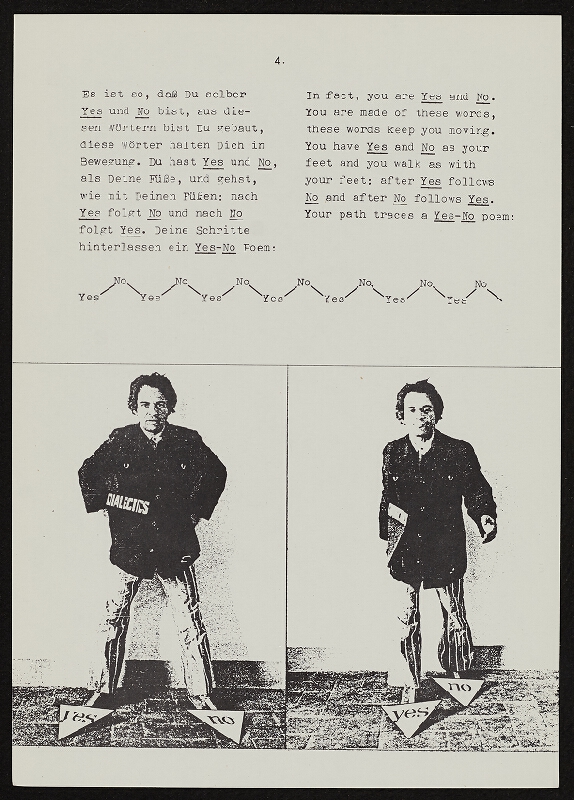 4.
Es ist so, daß Du selber
Yes und No bist, aus die-
sen Wörtern bist Du gebaut,
diese Wörter halten Dich in
Bewegung. Du hast Yes und No,
als Deine Füße, und gehst,
wie mit Deinen Füßen: nach
Yes folgt No und nach No
folgt Yes. Deine Schritte
hinterlassen ein Yes-No Poem:
In fact, you are Yes and No.
You are made of these words,
these words keep you moving.
You have Yes and No as your
feet and you walk as with
your feet: after Yes follows
No and after No follows Yes.
Your path traces a Yes-No poem:
No No No No No No No
Yes Yes Yes Yes Yes Yes Yes
DIALECTICS
yes no
yes no